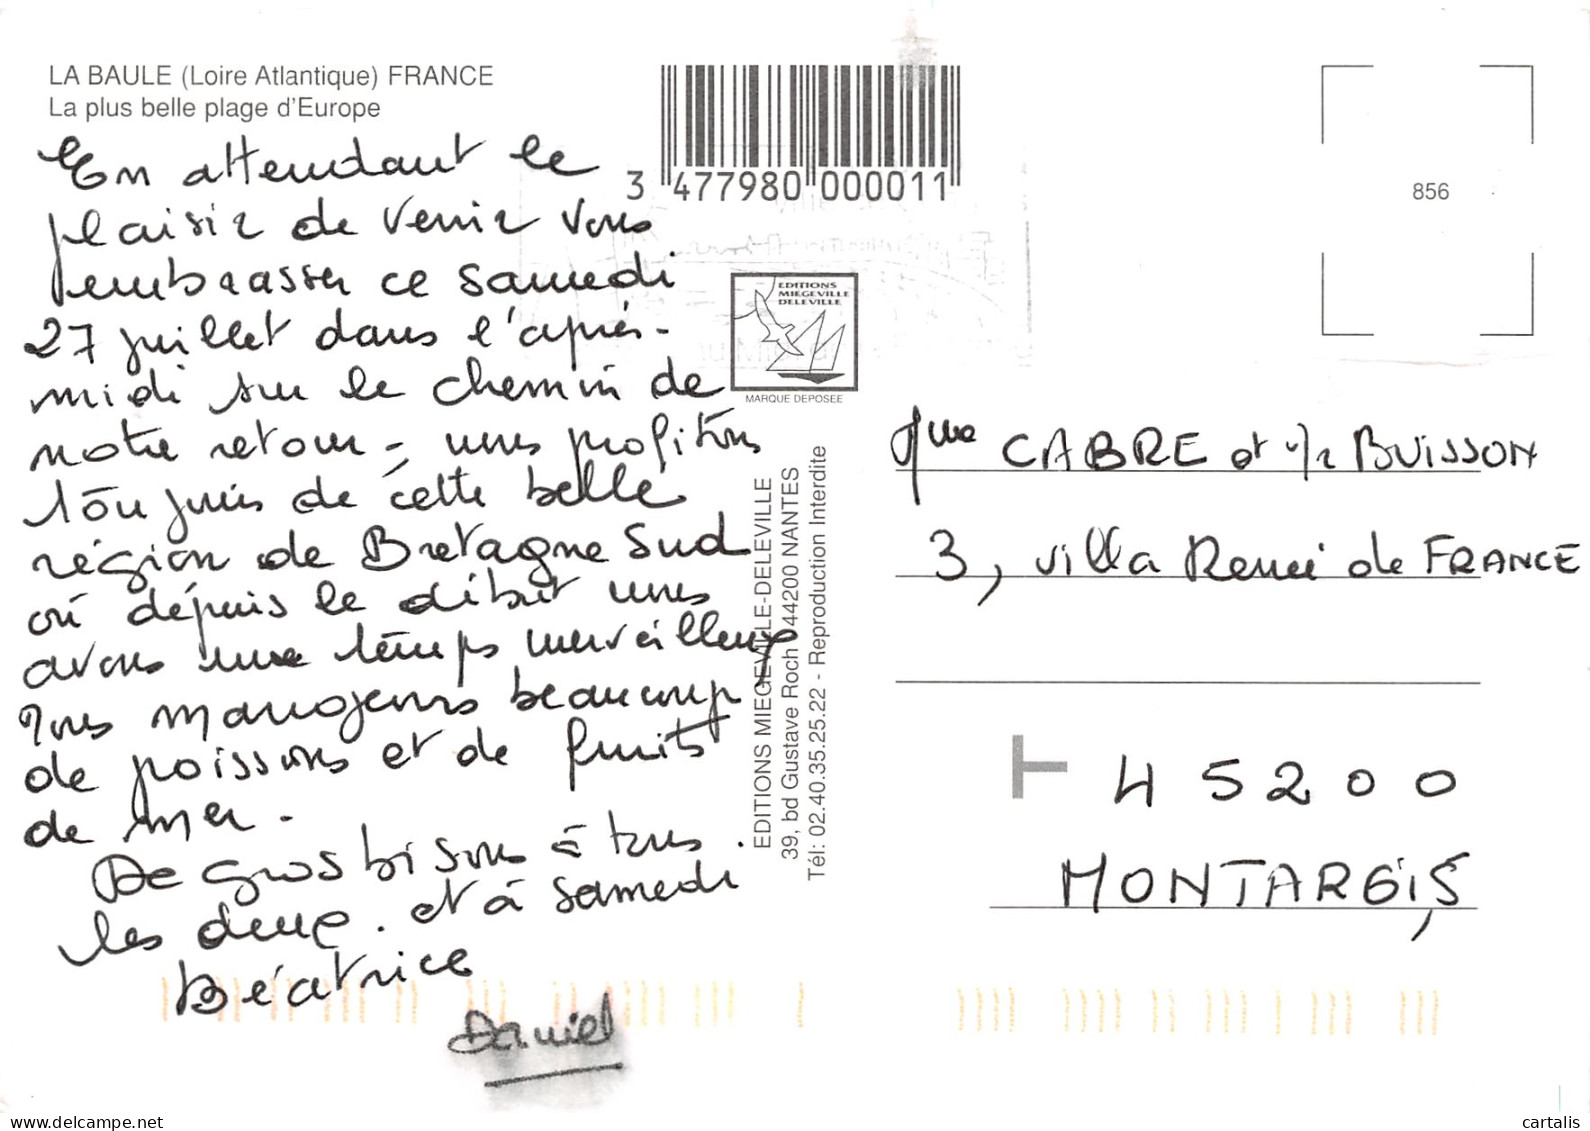 LA BAULE (Loire Atlantique) FRANCE
La plus belle plage d'Europe
En attendant le
plaisir de venir vous
embrasser ce samedi
27 juillet dans l'après-
midi sur le chemin de
notre retour - nous profitons
toujours de cette belle
région de Bretagne Sud
où dépuis le début nous
avons une temps merveilleux
Nous mangeons beaucoup
de poissons et de fruits
de mer.
De gros bisous à tous
les deux. et à samedi.
Béatrice
Daniel
3 477980 000011
EDITIONS
MIEGEVILLE
DELEVILLE
MARQUE DEPOSEE
EDITIONS MIEGEVILLE-DELEVILLE
39, bd Gustave Roch 44200 NANTES
Tél: 02.40.35.25.22 - Reproduction Interdite
856
Mme CABRE et Mr BUISSON
3, villa Remi de FRANCE
45200
MONTARGIS
delcampe.net
cartalis